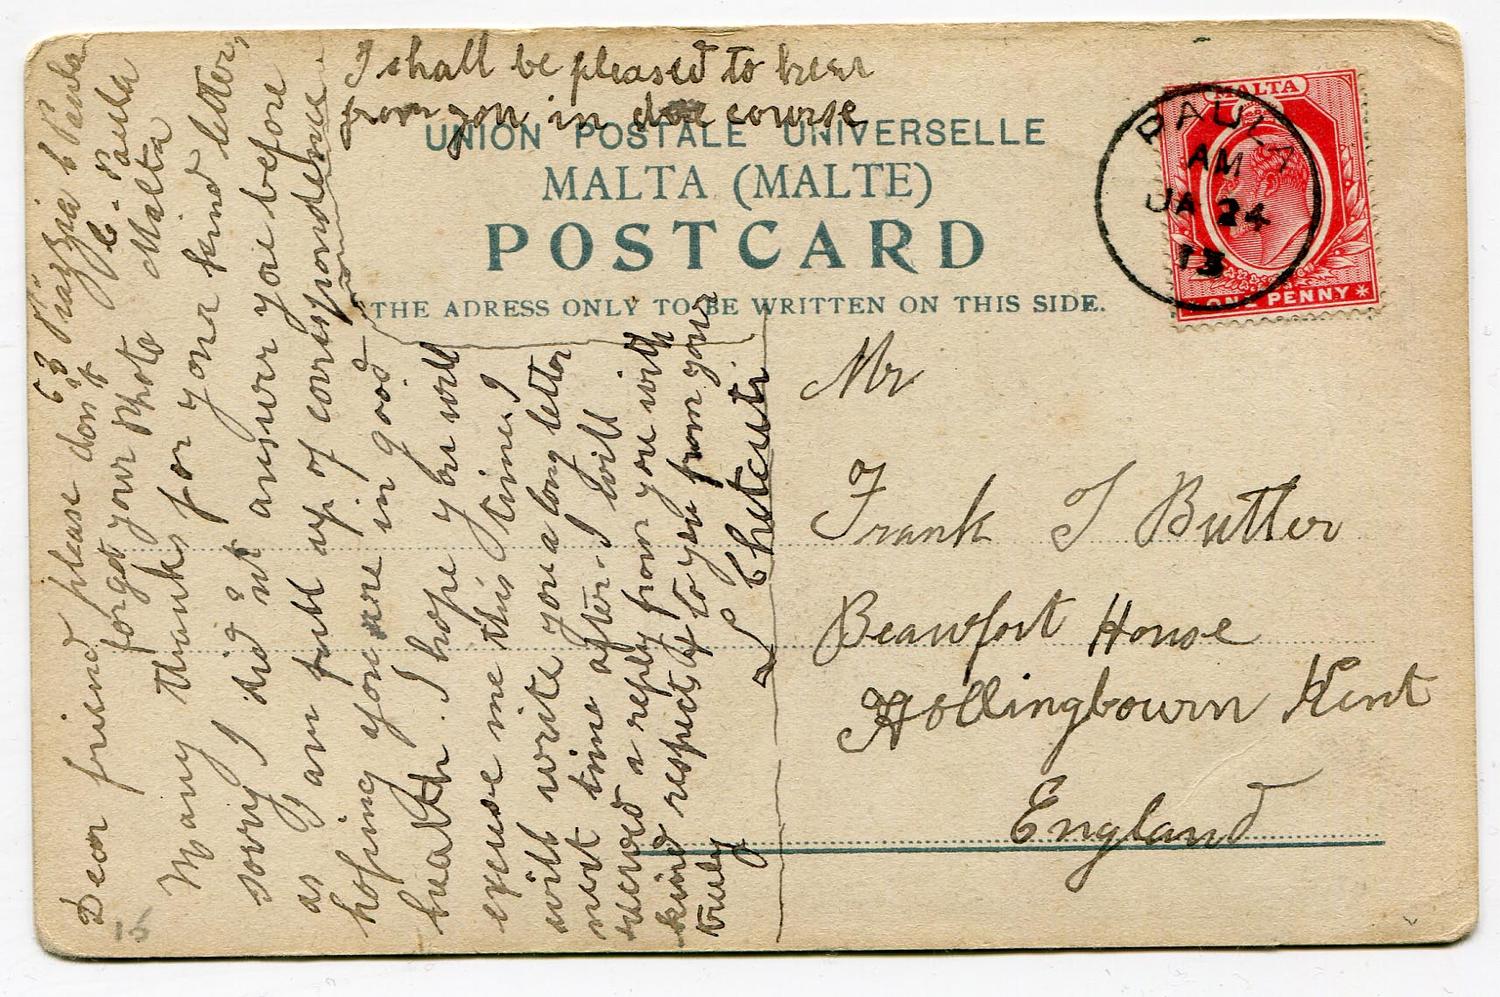 63 Piazzia b Paula
b. Paula
Malta
Dear friend please don't
forget your Photo
Many thanks for your kind letter,
sorry I did n't answer you before
as I am full up of correspondence
hoping you are in good
health. I hope you will
excuse me this time. I
will write you a long letter
next time after. I will
a reply from you with
kind respects to you from your
truly
L Chetcuti
I shall be pleased to hear
from you in due course
UNION POSTALE UNIVERSELLE
MALTA (MALTE)
POSTCARD
THE ADRESS ONLY TO BE WRITTEN ON THIS SIDE.
MALTA
ONE PENNY
PAULA
AM
JA 24
13
Mr
Frank J Butler
Beaufort House
Hollingbourn Kent
England
15